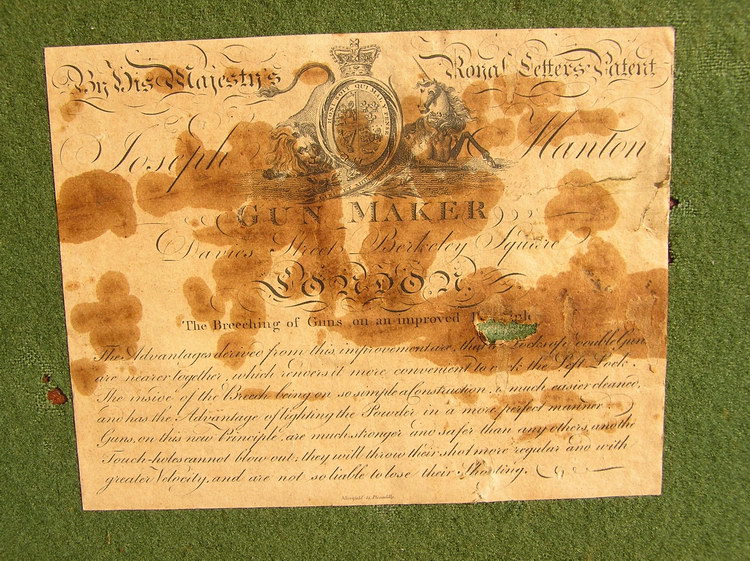 By His Majesty's Royal Letters Patent
HONI SOIT QUI MAL Y PENSE
Joseph Manton
GUN MAKER
Davies Street Berkeley Square
LONDON.
The Breeching of Guns, on an improved
The Advantages derived from this improvement are, that Locks of a Double Gun
are nearer together, which renders it more convenient to the Left Lock.
The inside of the Breech being on so simple a Construction, is much easier cleaned,
and has the Advantage of lighting the Powder in a more perfect manner
Guns, on this new Principle, are much stronger and safer than any others, and the
Touch-holes cannot blow out; they will throw their shot more regular and with
greater Velocity, and are not so liable to lose their Shooting.